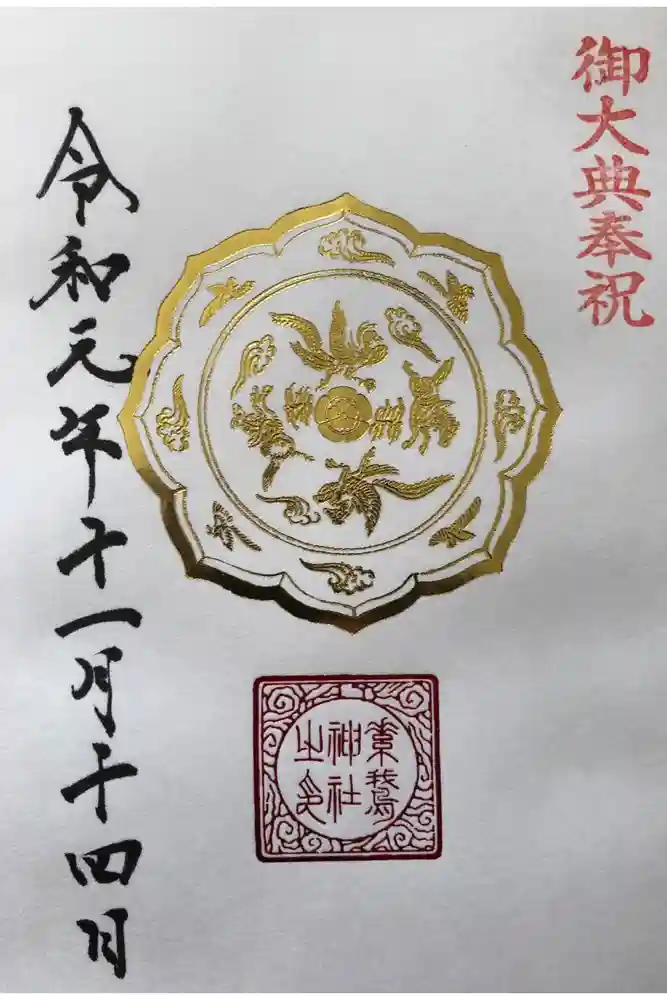 御大典奉祝
素鵞
神社
之印
令和元年十一月十四日